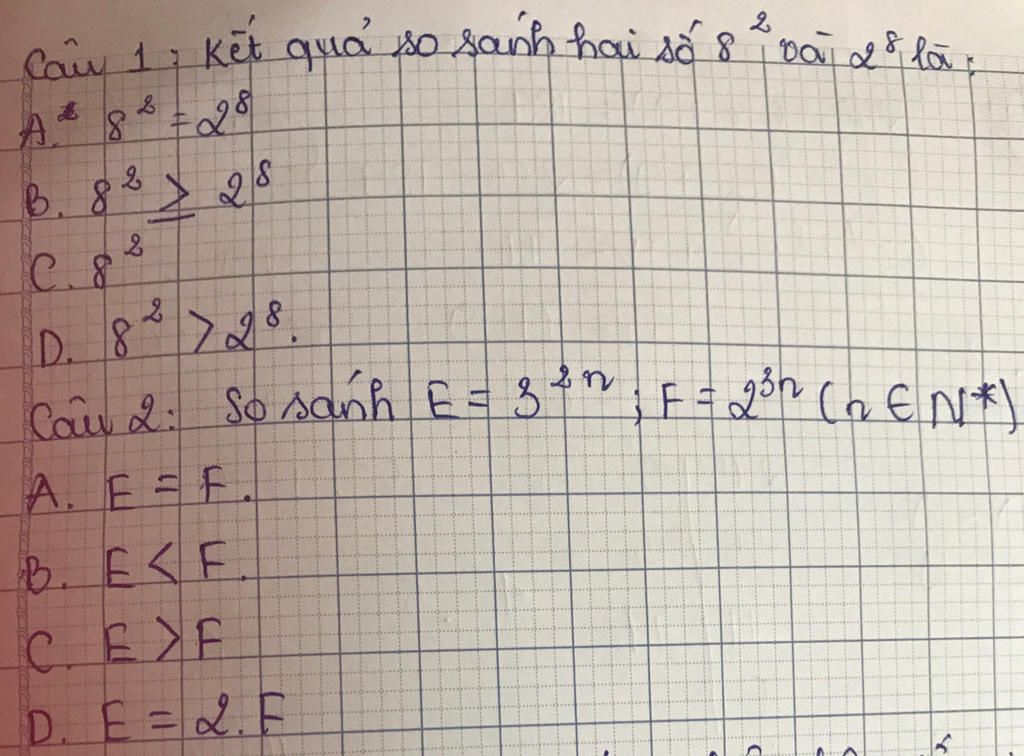 Câu 1: Kết quả so sánh hai số 8² và 2⁸ là:
A. 8² = 2⁸
B. 8² ≥ 2⁸
C. 8²
D. 8² > 2⁸.
Câu 2: So sánh E = 3²ⁿ ; F = 2³ⁿ (n ∈ N*)
A. E = F.
B. E < F.
C. E > F
D. E = 2.F